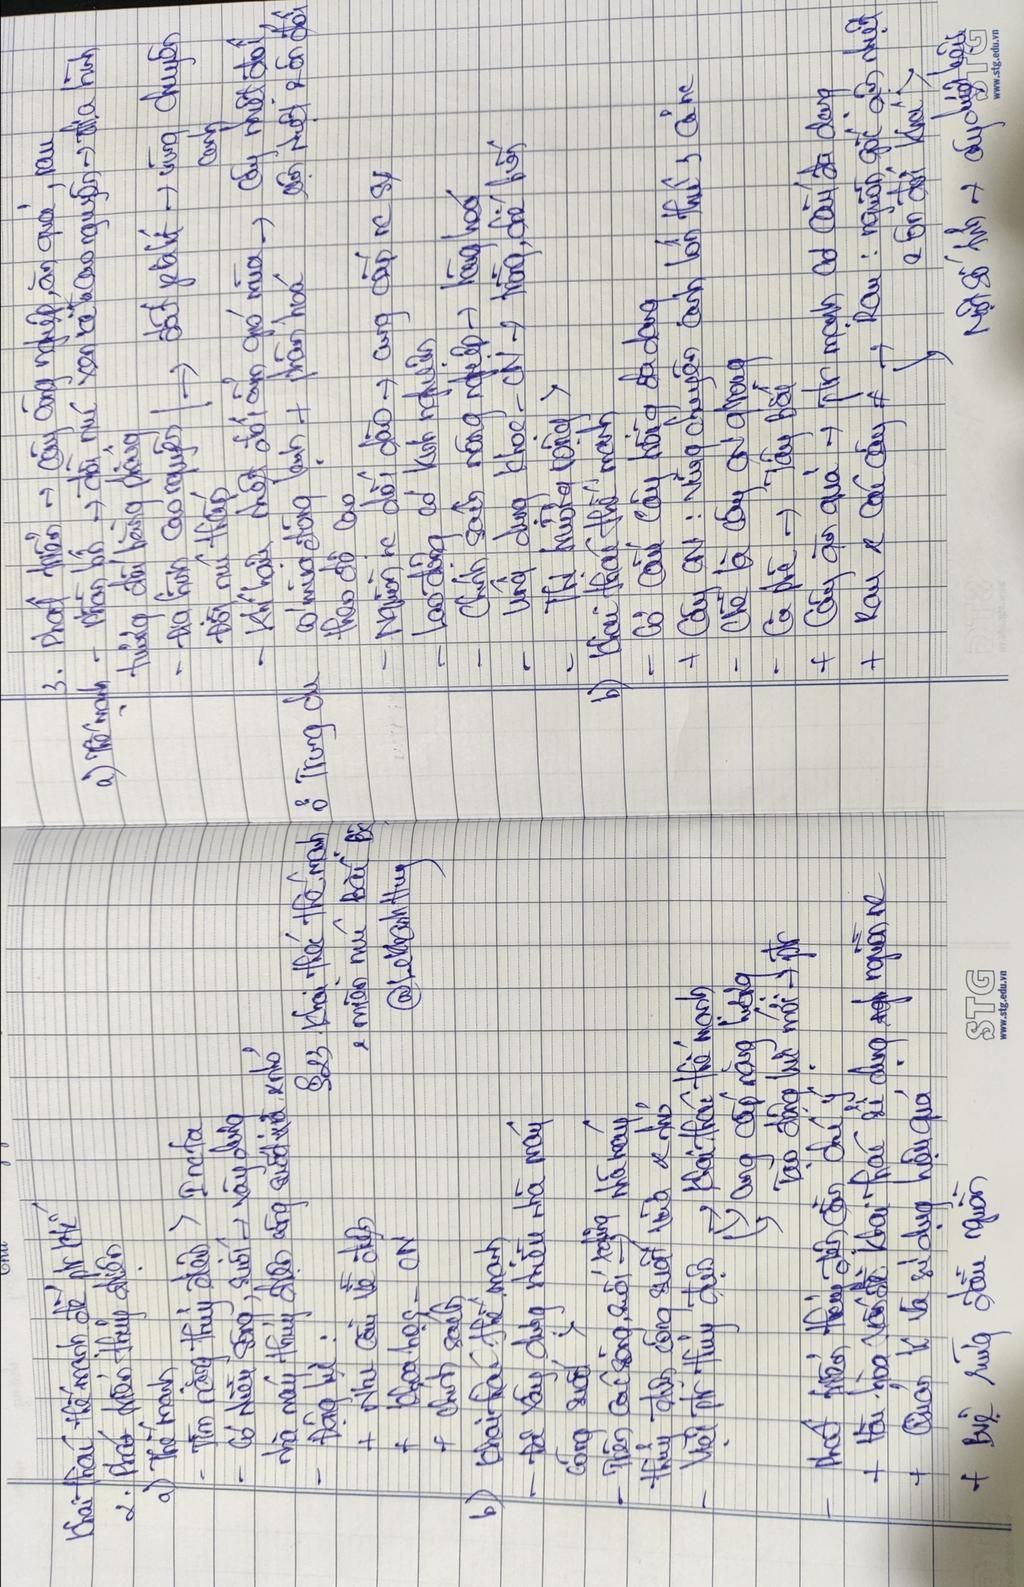 Khai thác thế mạnh để ptr ktế
2. Phát triển thủy điện
a) Thế mạnh
- Tiềm năng thủy điện >
- Có nhiều sông, suối → xây dựng
nhà máy thủy điện công suất và nhỏ
- Động lực:
+ Nhu cầu về điện
+ Khoa học - CN
+ chính sách
b) Khai thác thế mạnh
- Đã xây dựng nhiều nhà máy
công suất >
- Trên các sông, suối → nhà máy
thủy điện công suất vừa & nhỏ
- Việc ptr thủy điện → khai thác thế mạnh
→ cung cấp năng lượng
→ Tạo động lực mới → ptr
- Phát triển thủy điện cần chú ý:
+ Hài hòa vấn đề khai thác sử dụng nguồn nc
+ Quản lí và sử dụng hiệu quả
+ Bvệ rừng đầu nguồn
§23 Khai thác thế mạnh ở Trung du
& miền núi Bắc Bộ
@LeKhanhHuy
STG
www.stg.edu.vn
3. Phát triển → cây công nghiệp, ăn quả, rau
a) Thế mạnh - Phân bố → đồi núi xen kẽ cao nguyên → địa hình
tương đối bằng phẳng
- Địa hình cao nguyên → đất feralit → vùng chuyên
canh
Đồi núi thấp
- Khí hậu nhiệt đới ẩm gió mùa → cây nhiệt đới
có mùa đông lạnh + phân hoá cận nhiệt & ôn đới
theo độ cao
- Nguồn nc dồi dào → cung cấp nc sx
- Lao động có kinh nghiệm
- Chính sách nông nghiệp → hàng hoá
- Ứng dụng khoa - CN → trồng, chế biến
- Thị trường rộng >
b) Khai thác thế mạnh
- Cơ cấu cây trồng đa dạng
+ Cây CN: vùng chuyên canh lớn thứ 3 cả nc
- Chè là cây qtrọng
- Cà phê → Tây Bắc
+ Cây ăn quả → ptr mạnh cơ cấu đa dạng
+ Rau & các cây ≠ → Rau: nguồn gốc cận nhiệt
& ôn đới
→ Một số tỉnh → cây dược liệu
STG
www.stg.edu.vn